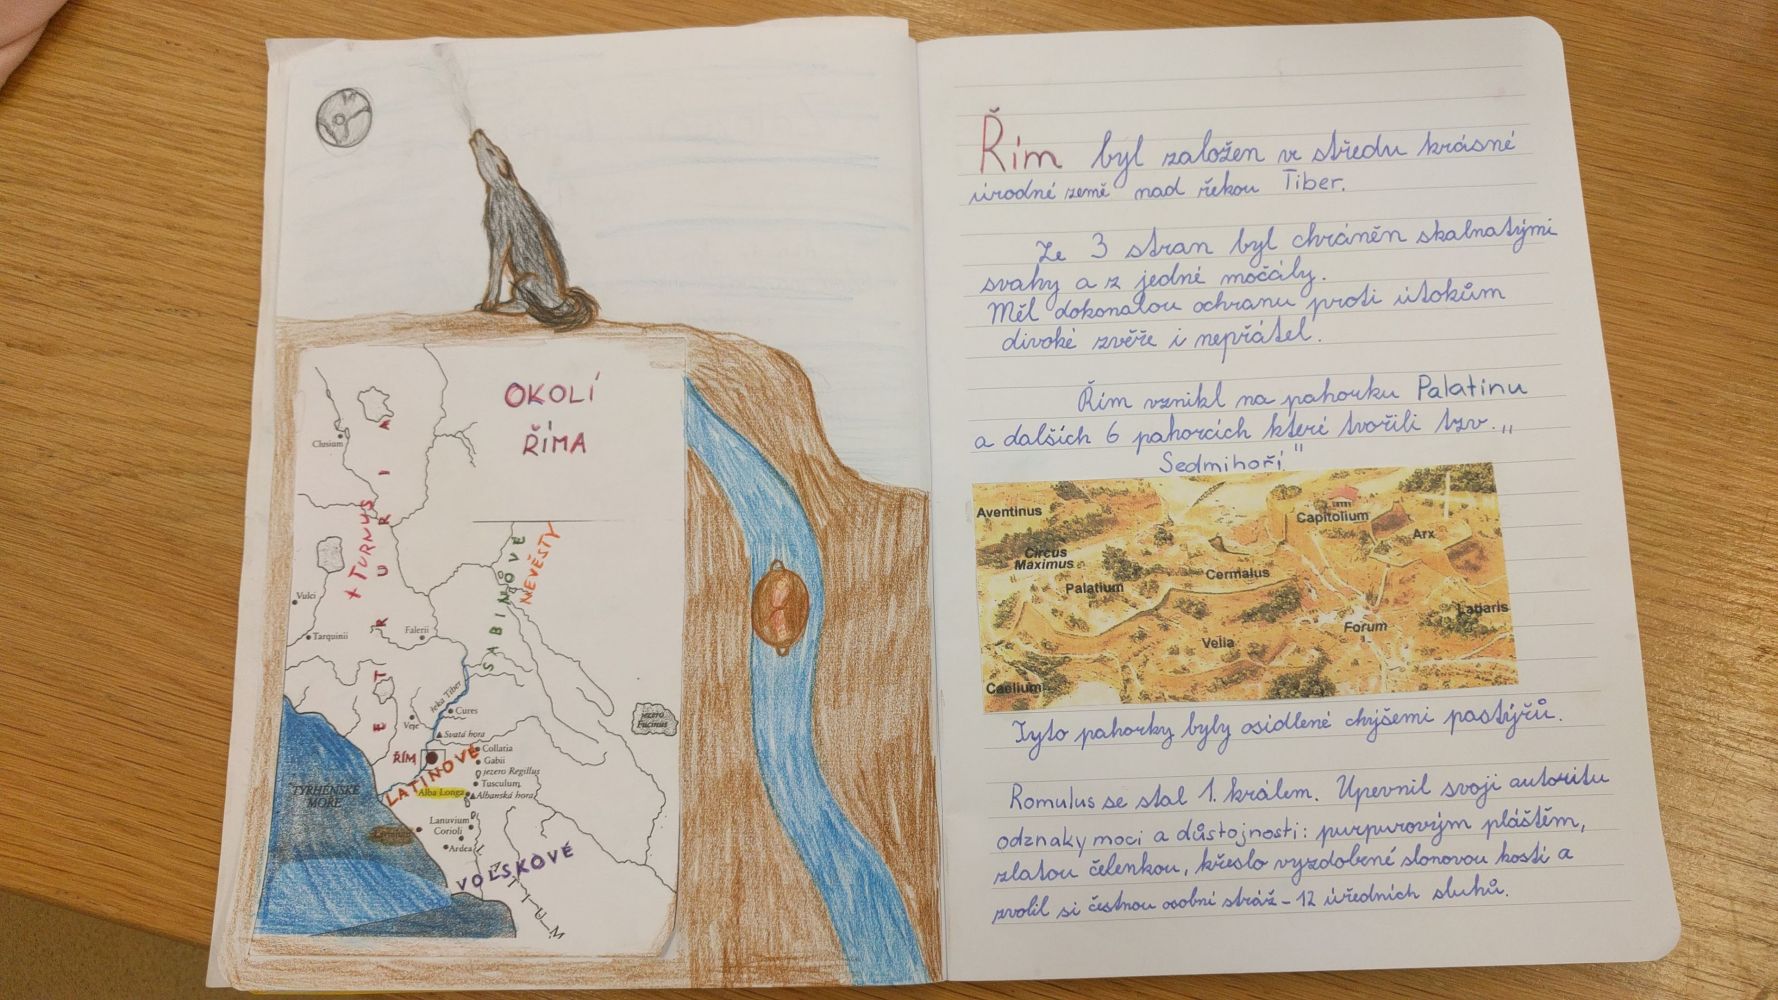 OKOLÍ
ŘÍMA
Clusium
ETRURIM
+ TURNUS
SABINOVÉ
NEVĚSTY
Vulci
Tarquinii
Falerii
řeka Tiber
Cures
Veje
Svatá hora
ŘÍM
LATINOVÉ
Collatia
Gabii
jezero Regillus
Tusculum
Alba Longa
Albanská hora
jezero
Fucinus
TYRHÉNSKÉ
MOŘE
Lanuvium
Corioli
Ardea
VOLSKOVÉ
LATIUM
Řím byl založen ve středu krásné
úrodné země nad řekou Tiber.
Ze 3 stran byl chráněn skalnatými
svahy a z jedné močály.
Měl dokonalou ochranu proti útokům
divoké zvěře i nepřátel.
Řím vznikl na pahorku Palatinu
a dalších 6 pahorcích které tvořili tzv. „
Sedmihoří"
Aventinus
Capitolium
Arx
Circus
Maximus
Palatium
Cermalus
Lataris
Forum
Velia
Caelium
Tyto pahorky byly osidlené chýšemi pastýřů.
Romulus se stal 1. králem. Upevnil svoji autoritu
odznaky moci a důstojnosti: purpurovým pláštěm,
zlatou čelenkou, křeslo vyzdobené slonovou kosti a
zvolil si čestnou osobní stráž - 12 úředních sluhů.